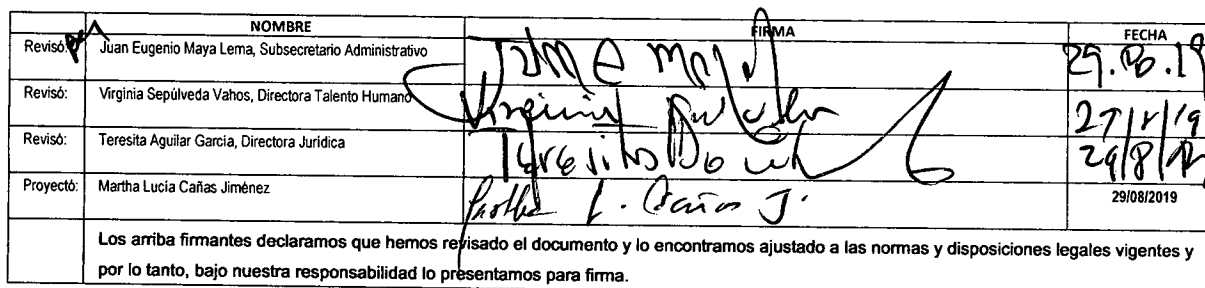 NOMBRE FIRMA FECHA
Revisó: Juan Eugenio Maya Lema, Subsecretario Administrativo
Revisó: Virginia Sepúlveda Vahos, Directora Talento Humano
Revisó: Teresita Aguilar García, Directora Jurídica 29/8/19
Proyectó: Martha Lucía Cañas Jiménez Martha L. Cañas J. 29/08/2019
Los arriba firmantes declaramos que hemos revisado el documento y lo encontramos ajustado a las normas y disposiciones legales vigentes y
por lo tanto, bajo nuestra responsabilidad lo presentamos para firma.